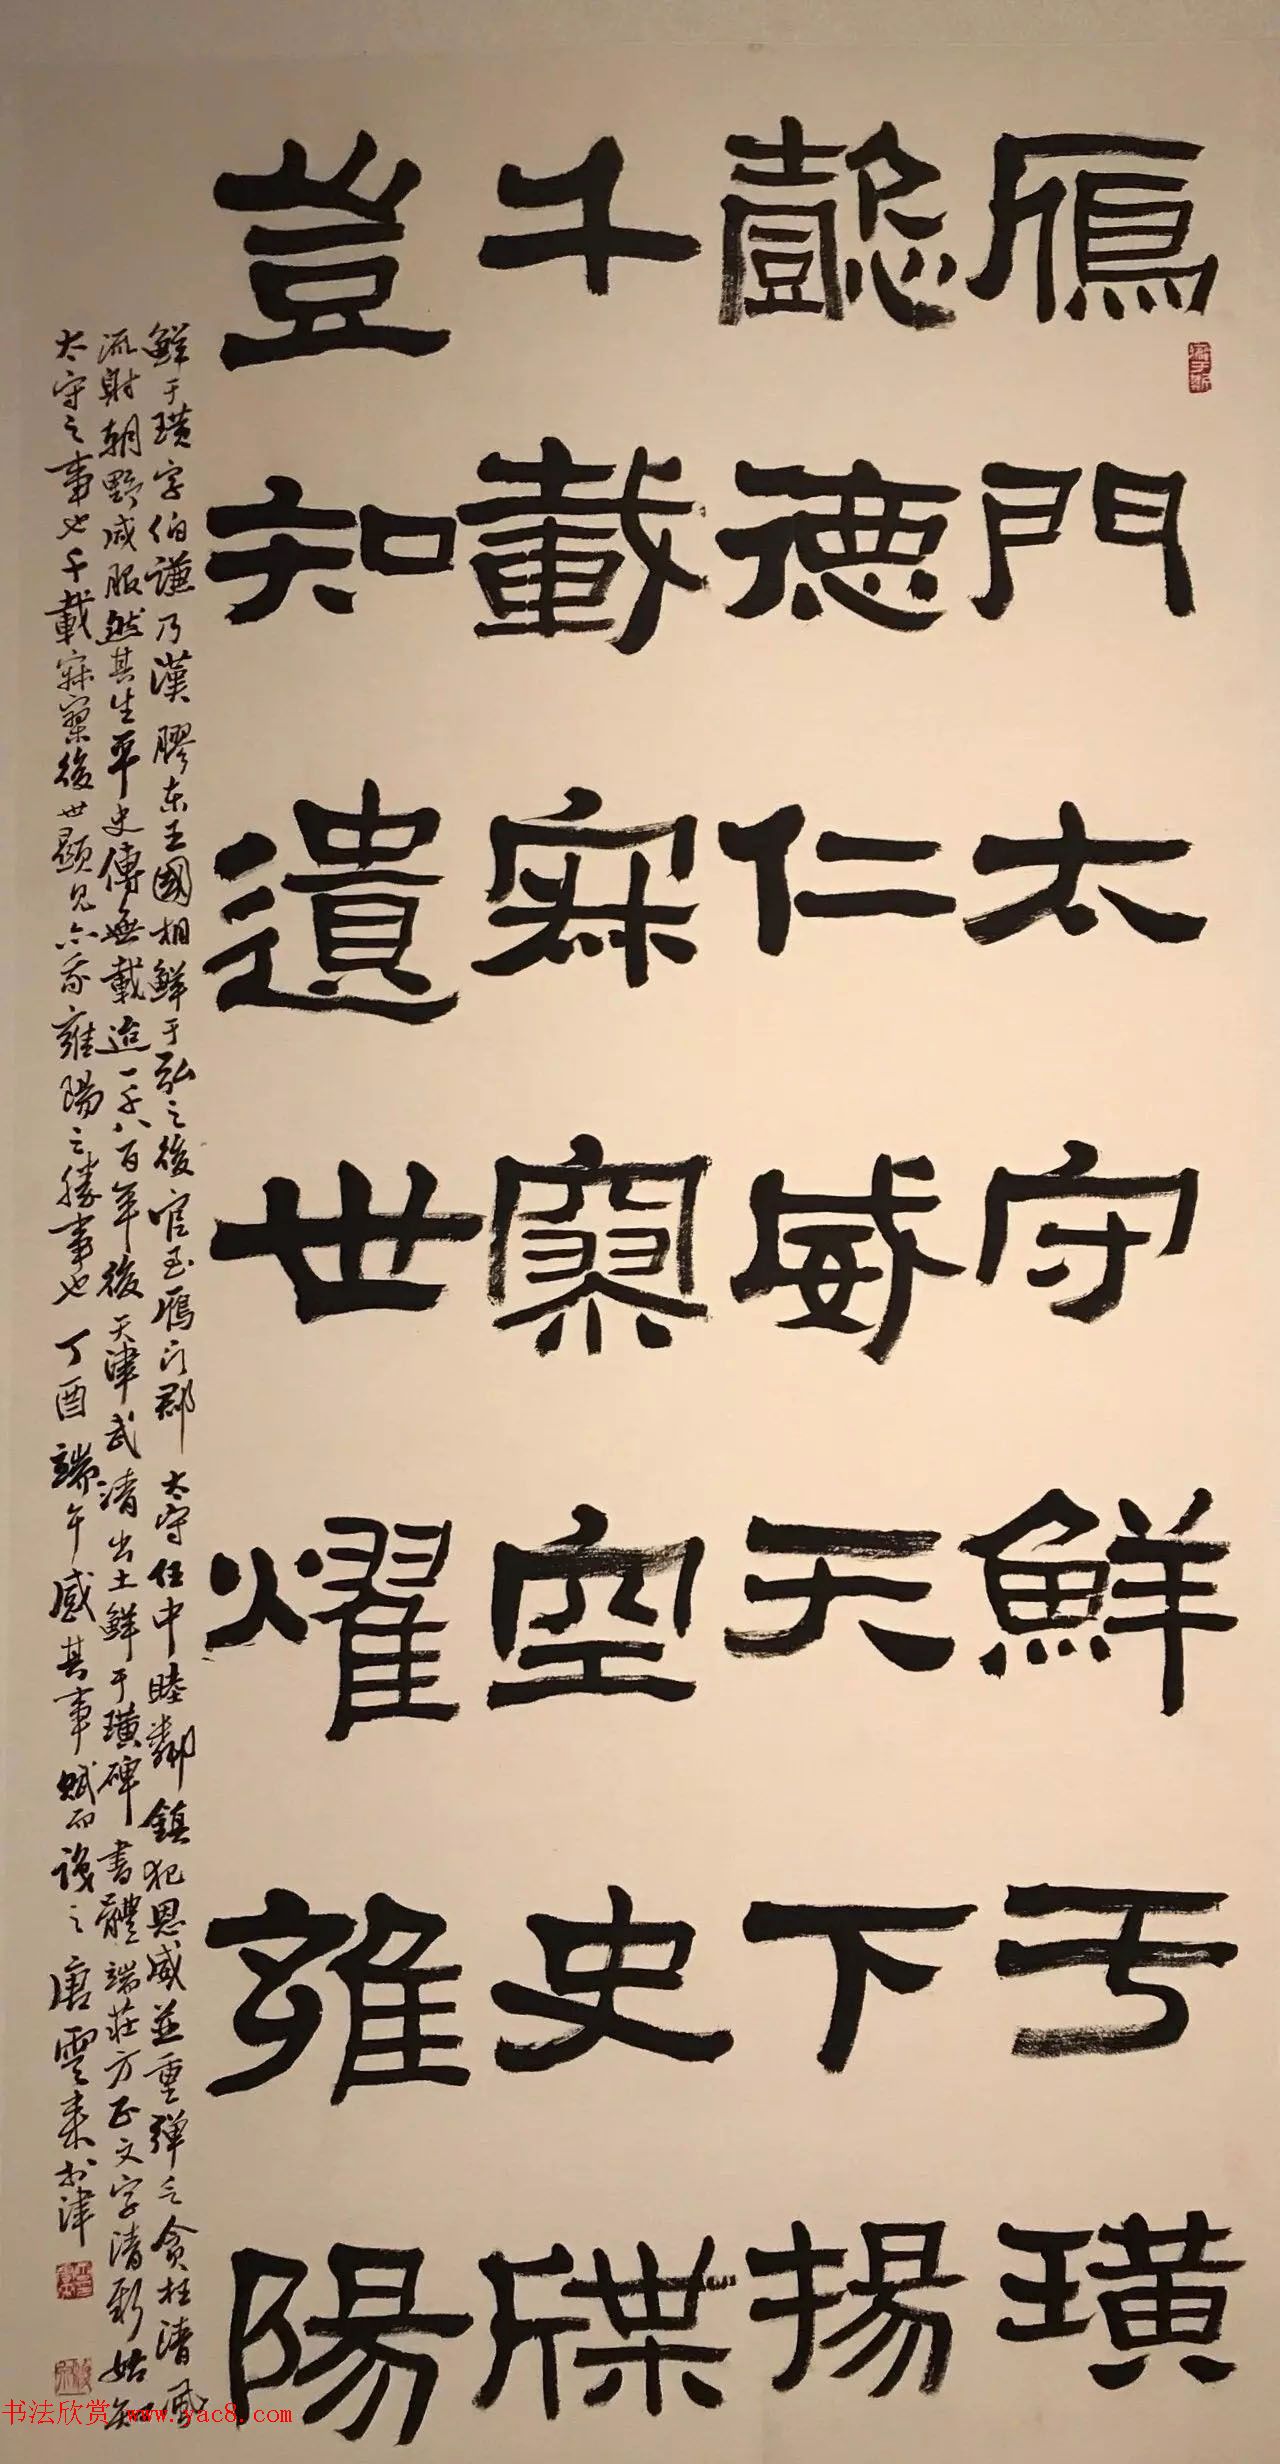 鴈門太守鮮于璜
懿德仁威天下揚
千載寂寞空史牒
豈知遺世耀雍陽
鮮于璜字伯謙乃漢膠東王國相鮮于弘之後官至鴈门郡太守任中睦鄰鎮犯恩威並重彈之貪枉清風
流射朝野咸服然其生平史傳無載迨一千八百年後天津武清出土鮮于璜碑書體端莊方正文字清新始知
太守之事也千載寂寞後世顯見亦乃雍陽之勝事也丁酉端午感其事賦而識之唐雲来於津
书法欣赏 www.yac8.com